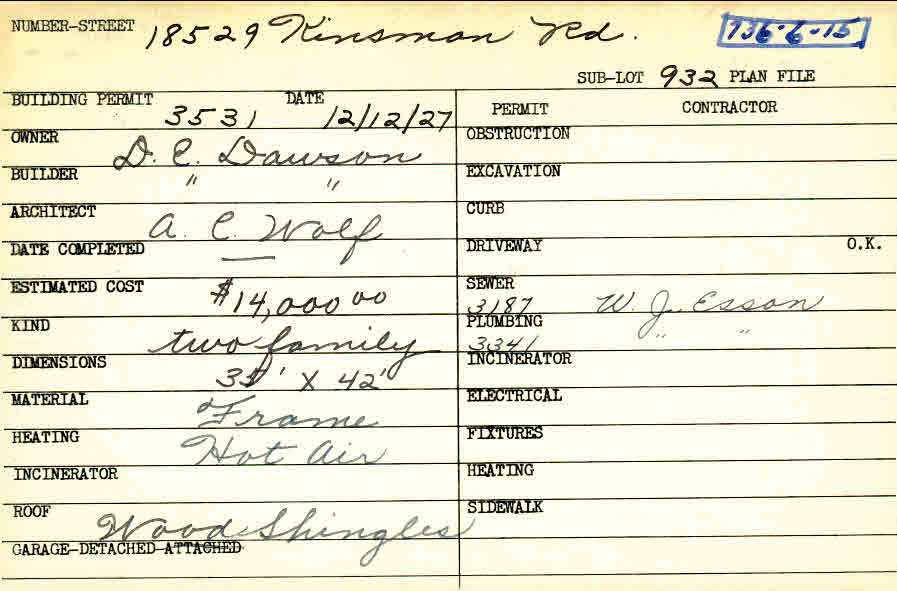 NUMBER-STREET 18529 Kinsman Rd. 736-6-15
SUB-LOT 932 PLAN FILE
BUILDING PERMIT 3531 DATE 12/12/27
OWNER D. C. Dawson
BUILDER " "
ARCHITECT A. C. Wolf
DATE COMPLETED —
ESTIMATED COST $14,000 00
KIND two family
DIMENSIONS 35' X 42'
MATERIAL Frame
HEATING Hot Air
INCINERATOR
ROOF Wood Shingles
GARAGE-DETACHED-ATTACHED
PERMIT CONTRACTOR
OBSTRUCTION
EXCAVATION
CURB
DRIVEWAY O.K.
SEWER
3187 W. J. Esson
PLUMBING
3341 " "
INCINERATOR
ELECTRICAL
FIXTURES
HEATING
SIDEWALK